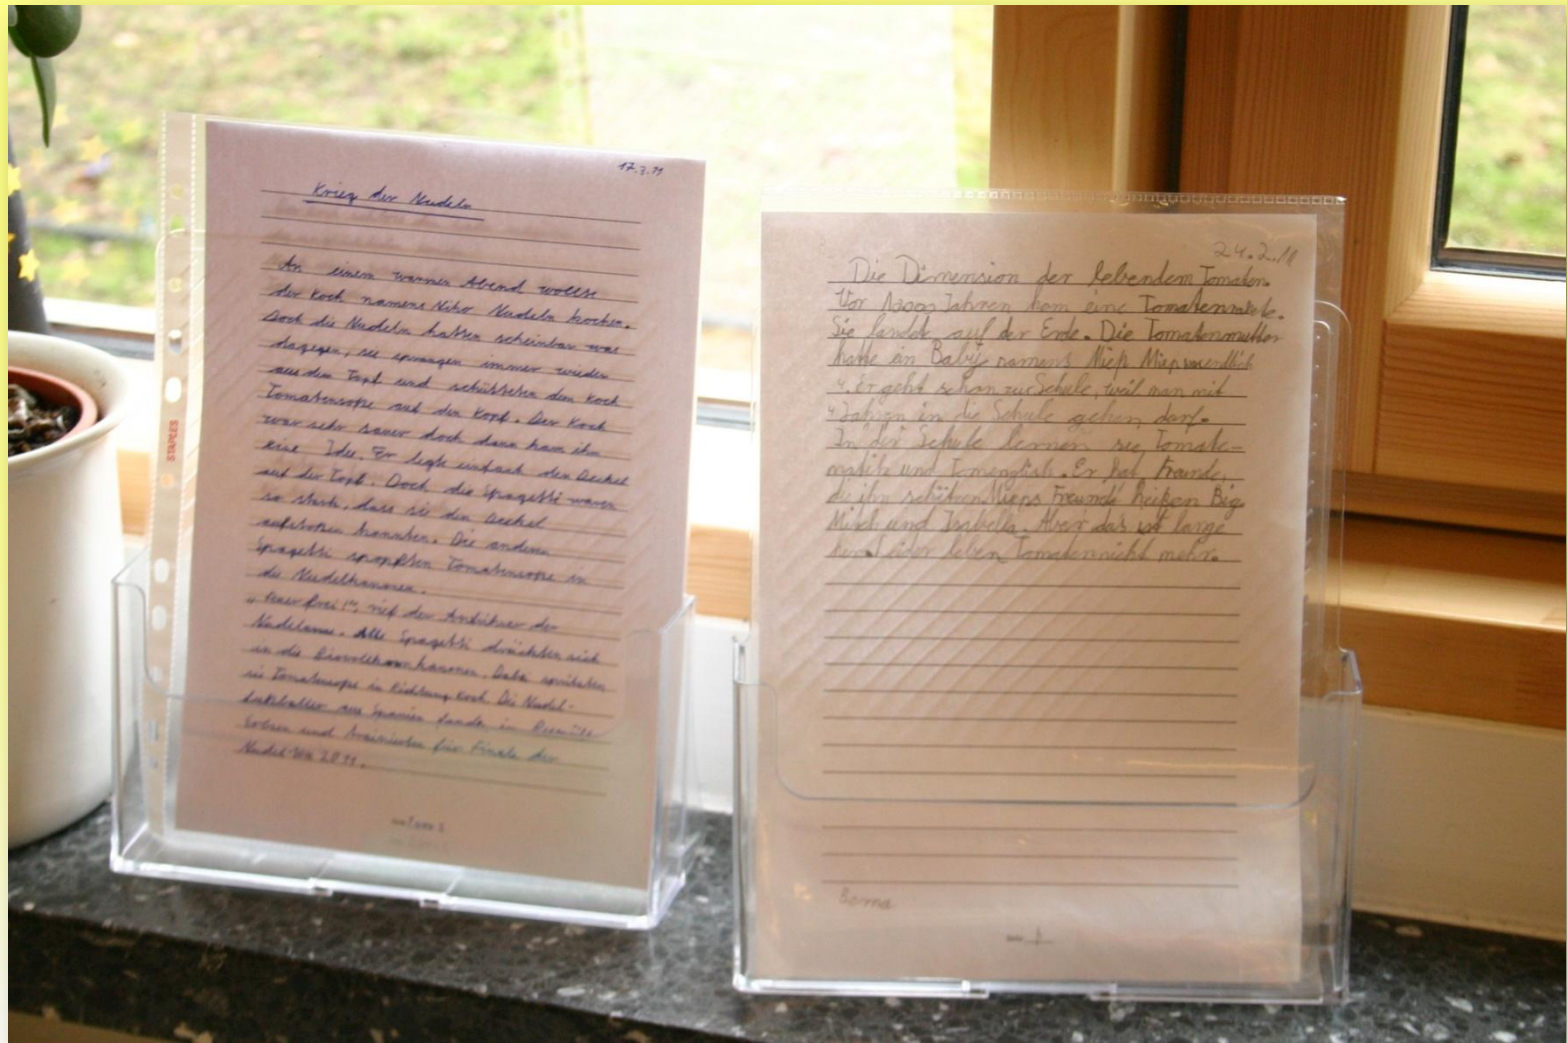 17.3.11
Krieg der Nudeln
An einem warmen Abend wollte
der Koch namens Niko Nudeln kochen.
Doch die Nudeln hatten scheinbar was
dagegen, sie sprangen immer wieder
aus dem Topf und schütteten dem Koch
Tomatensoße auf den Kopf. Der Koch
war sehr sauer doch dann kam ihm
eine Idee. Er legte einfach den Deckel
auf den Topf. Doch die Spagetti waren
so stark, dass sie den Deckel
aufstoßen konnten. Die anderen
Spagetti stopften Tomatensoße in
die Nudelkanonen.
„Feuer frei!“, rief der Anführer der
Nudelarmee. Alle Spagetti drückten sich
in die Kanonen. Dabei spritzten
sie Tomatensoße in Richtung Koch. Die Nudel-
fußballer aus Spanien
und trainierten für Finale der
Nudel-WM 2011.
STAPLES
24.2.11
Die Dimension der lebendem Tomaten.
Vor Jahren kam eine Tomatenrakete.
Sie landet auf der Erde. Die Tomatenmutter
hatte ein Baby namens Miep Miep
4. Er geht schon zur Schule, weil man mit
4 Jahren in die Schule gehen darf.
In der Schule lernen sie Tomate-
matik und Tomenglish. Er hat Freunde,
die ihn schützen. Mieps Freunde heißen Big
Misch und Isabella. Aber das ist lange
her. Leider leben Tomaten nicht mehr.